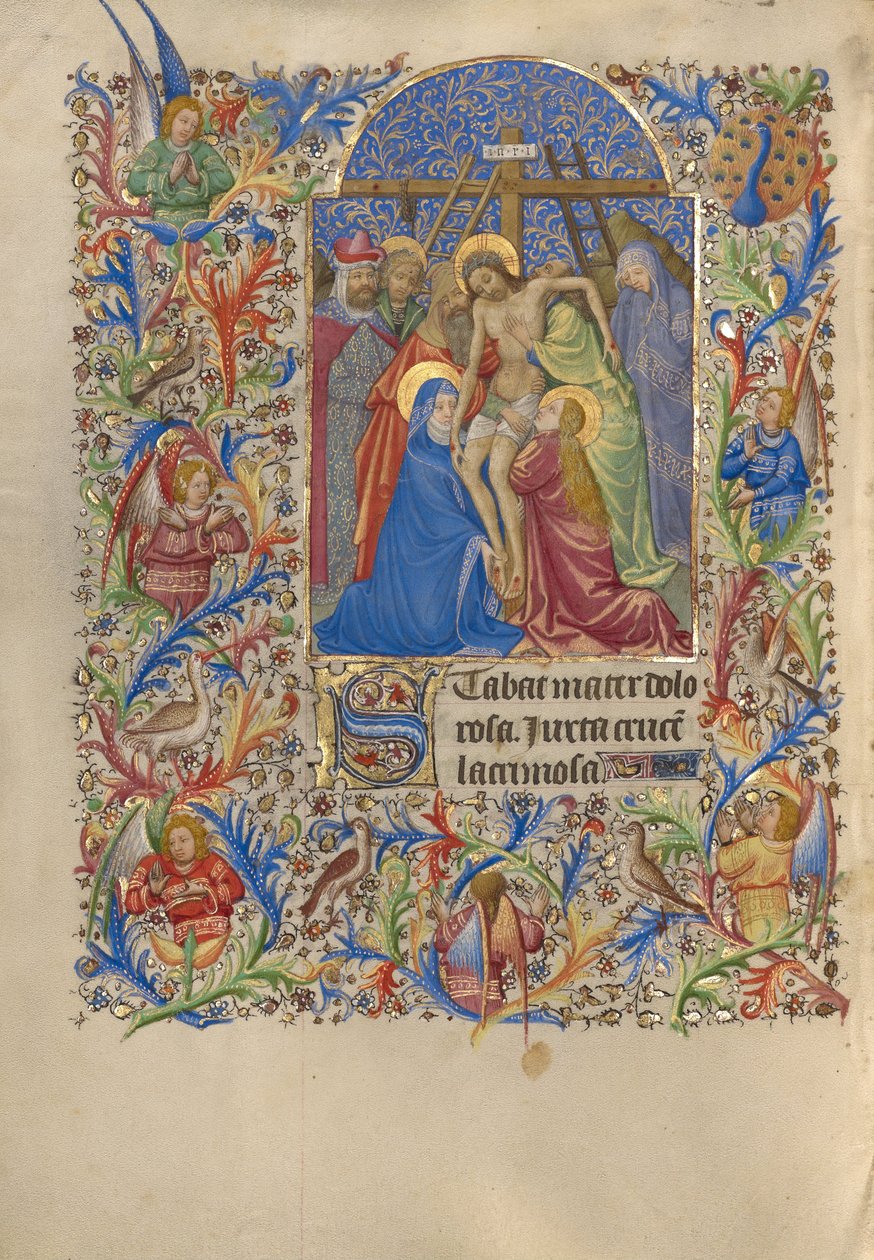 i·n·r·i
Stabat mater dolo
rosa. Juxta crucē
lacrimosa